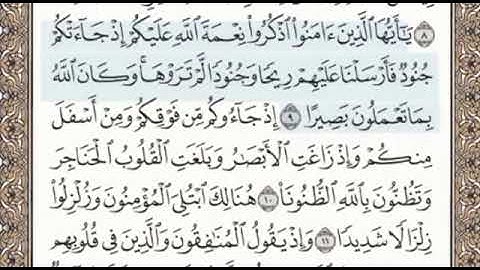 ٨ يَٰٓأَيُّهَا ٱلَّذِينَ ءَامَنُوا۟ ٱذْكُرُوا۟ نِعْمَةَ ٱللَّهِ عَلَيْكُمْ إِذْ جَآءَتْكُمْ
جُنُودٌ فَأَرْسَلْنَا عَلَيْهِمْ رِيحًا وَجُنُودًا لَّمْ تَرَوْهَا ۚ وَكَانَ ٱللَّهُ
بِمَا تَعْمَلُونَ بَصِيرًا ٩ إِذْ جَآءُوكُم مِّن فَوْقِكُمْ وَمِنْ أَسْفَلَ
مِنكُمْ وَإِذْ زَاغَتِ ٱلْأَبْصَٰرُ وَبَلَغَتِ ٱلْقُلُوبُ ٱلْحَنَاجِرَ
وَتَظُنُّونَ بِٱللَّهِ ٱلظُّنُونَا۠ ١٠ هُنَالِكَ ٱبْتُلِىَ ٱلْمُؤْمِنُونَ وَزُلْزِلُوا۟
زِلْزَالًا شَدِيدًا ١١ وَإِذْ يَقُولُ ٱلْمُنَٰفِقُونَ وَٱلَّذِينَ فِى قُلُوبِهِم